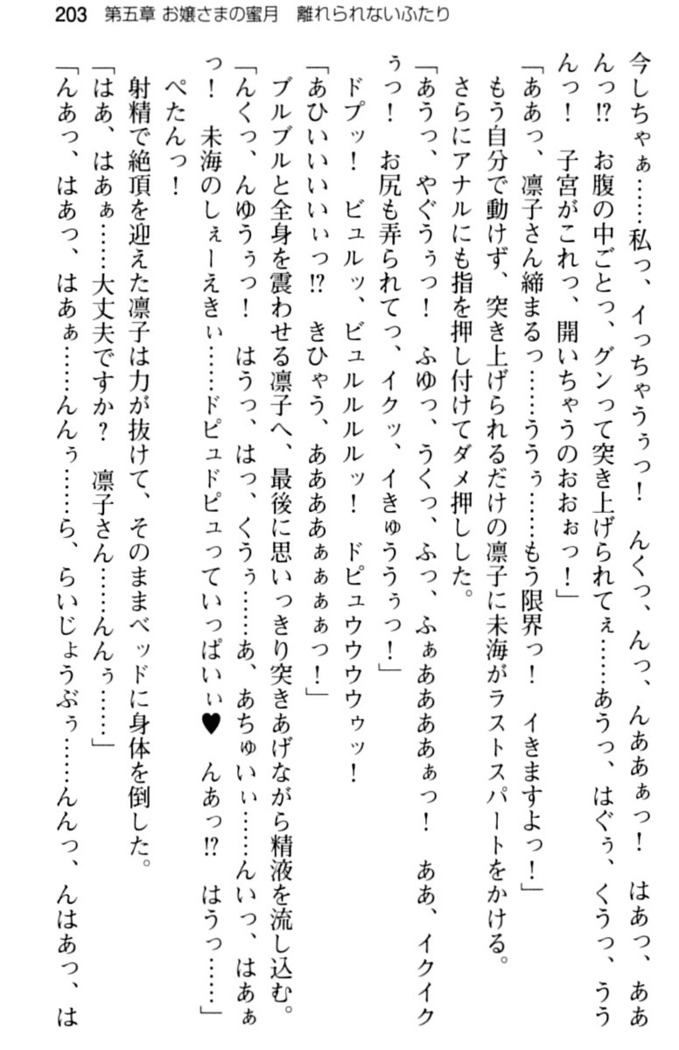 203 第五章 お嬢さまの蜜月 離れられないふたり
今しちゃぁ……私っ、イっちゃうぅっ！ んくっ、んっ、んああぁっ！ はあっ、ああ
んっっ!? お腹の中ごとっ、グンって突き上げられてぇ……あうっ、はぐぅ、くうっ、うう
んっ！ 子宮がこれっ、開いちゃうのおおぉっ！」
「ああっ、凛子さん締まるっ……ううぅ……もう限界っ！ イきますよっ！」
もう自分で動けず、突き上げられるだけの凛子に未海がラストスパートをかける。
さらにアナルにも指を押し付けてダメ押しした。
「あうっ、やぐうぅっ！ ふゆっ、うくっ、ふっ、ふぁああああぁっ！ ああ、イクイク
ぅっ！ お尻も弄られてっ、イクッ、イきゅううぅっ！」
ドプッ！ ビュルッ、ビュルルルルッ！ ドピュウウウウゥッ！
「あひいいいいぃっ!? きひゃう、ああああぁぁぁぁっ！」
ブルブルと全身を震わせる凛子へ、最後に思いっきり突きあげながら精液を流し込む。
「んくっ、んゆうぅっ！ はうっ、はっ、くうぅ……あ、あちゅいぃ……んいっ、はあぁ
っ！ 未海のしぇーえきぃ……ドピュドピュっていっぱいぃ♥ んあっ!? はうっ……」
ぺたんっ！
射精で絶頂を迎えた凛子は力が抜けて、そのままベッドに身体を倒した。
「はあ、はあぁ……大丈夫ですか？ 凛子さん……んんぅ……」
「んあっ、はあっ、はあぁ……んんぅ……ら、らいじょうぶぅ……んんっ、んはあっ、は